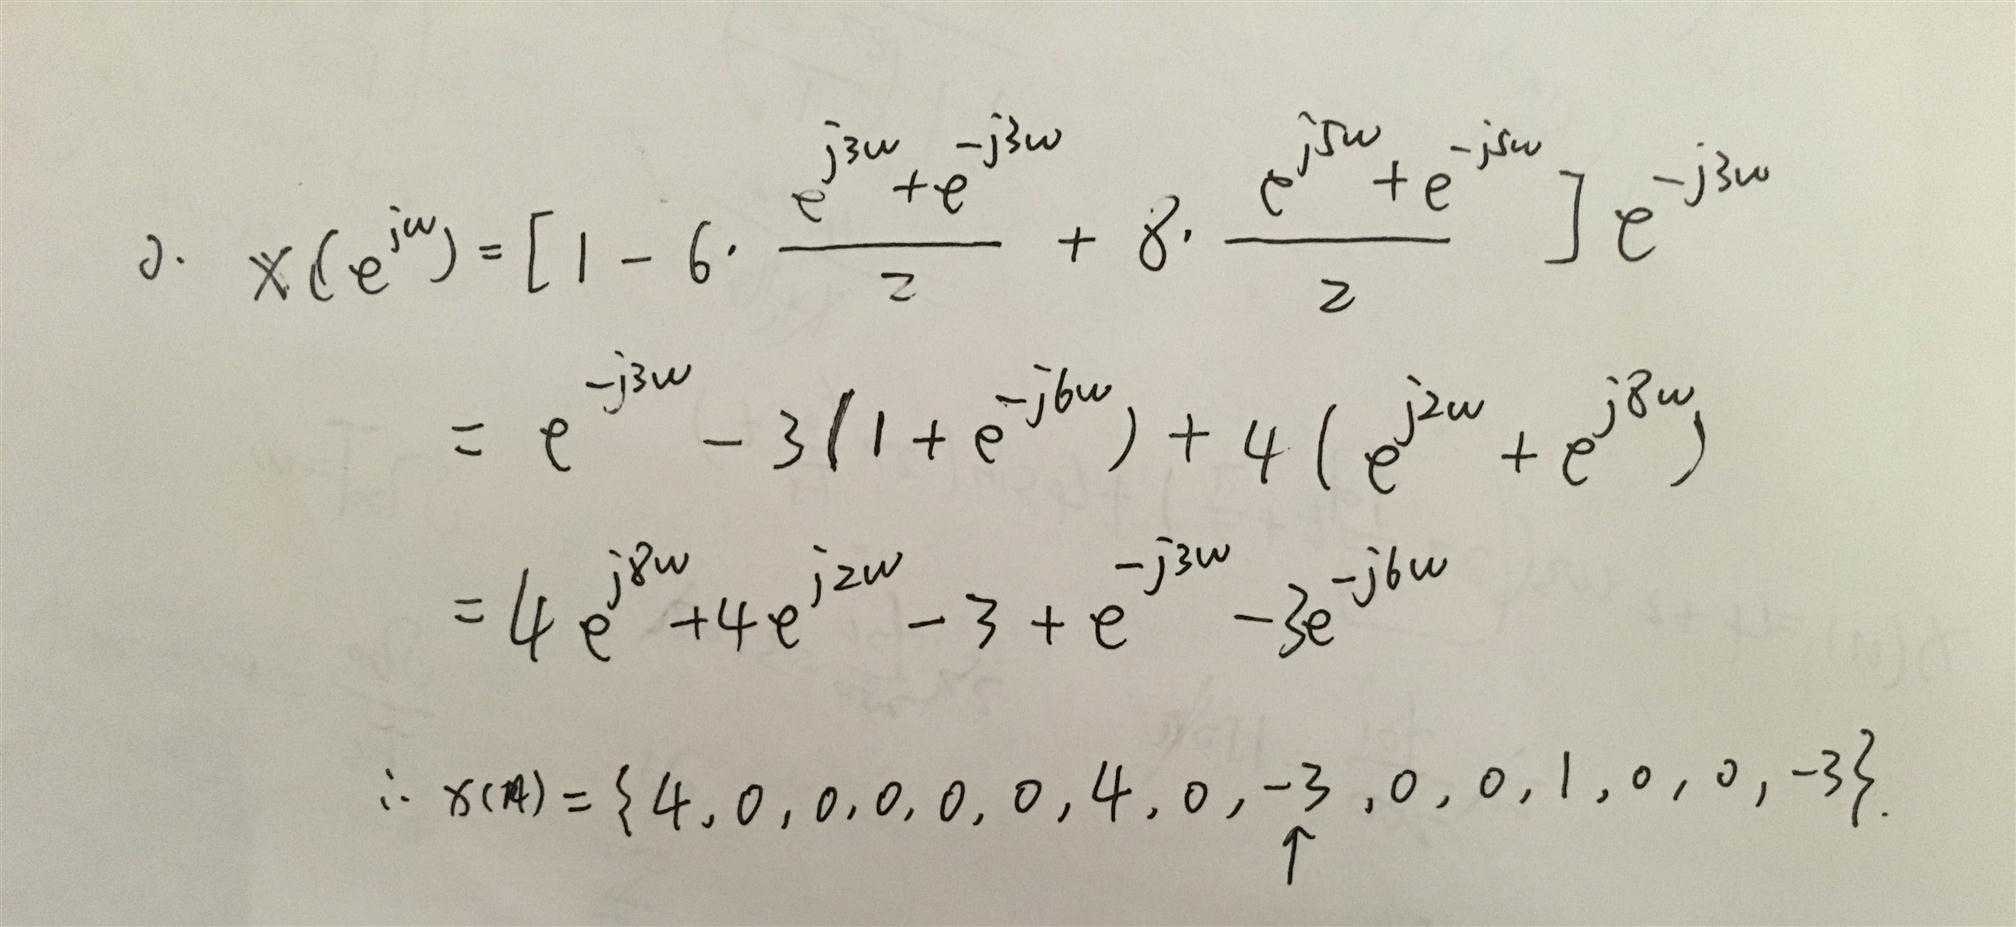 2. X(e^{jw}) = [1 - 6 · \frac{e^{j3w} + e^{-j3w}}{2} + 8 · \frac{e^{j5w} + e^{-j5w}}{2}] e^{-j3w}
= e^{-j3w} - 3(1 + e^{-j6w}) + 4(e^{j2w} + e^{j8w})
= 4e^{j8w} + 4e^{j2w} - 3 + e^{-j3w} - 3e^{-j6w}
∴ x(n) = {4, 0, 0, 0, 0, 0, 4, 0, -3, 0, 0, 1, 0, 0, -3}.
↑